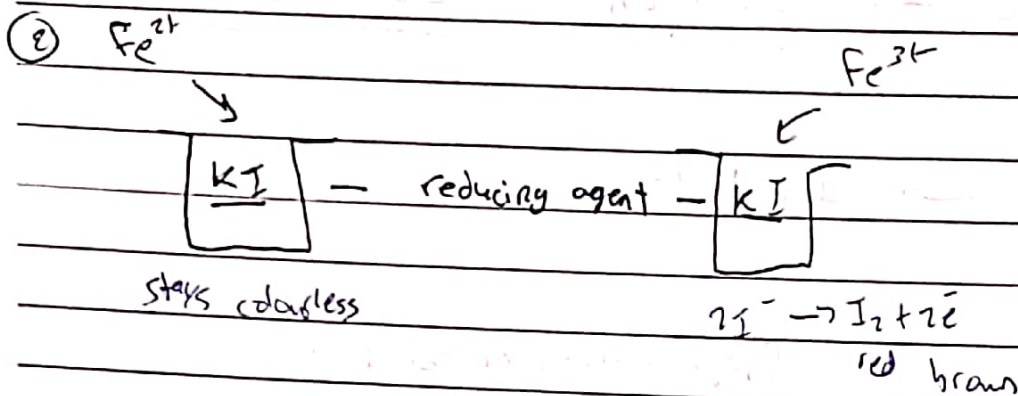 ② Fe²⁺
Fe³⁺
KI — reducing agent — KI
stays colourless
2I⁻ → I₂ + 2e⁻
red brown